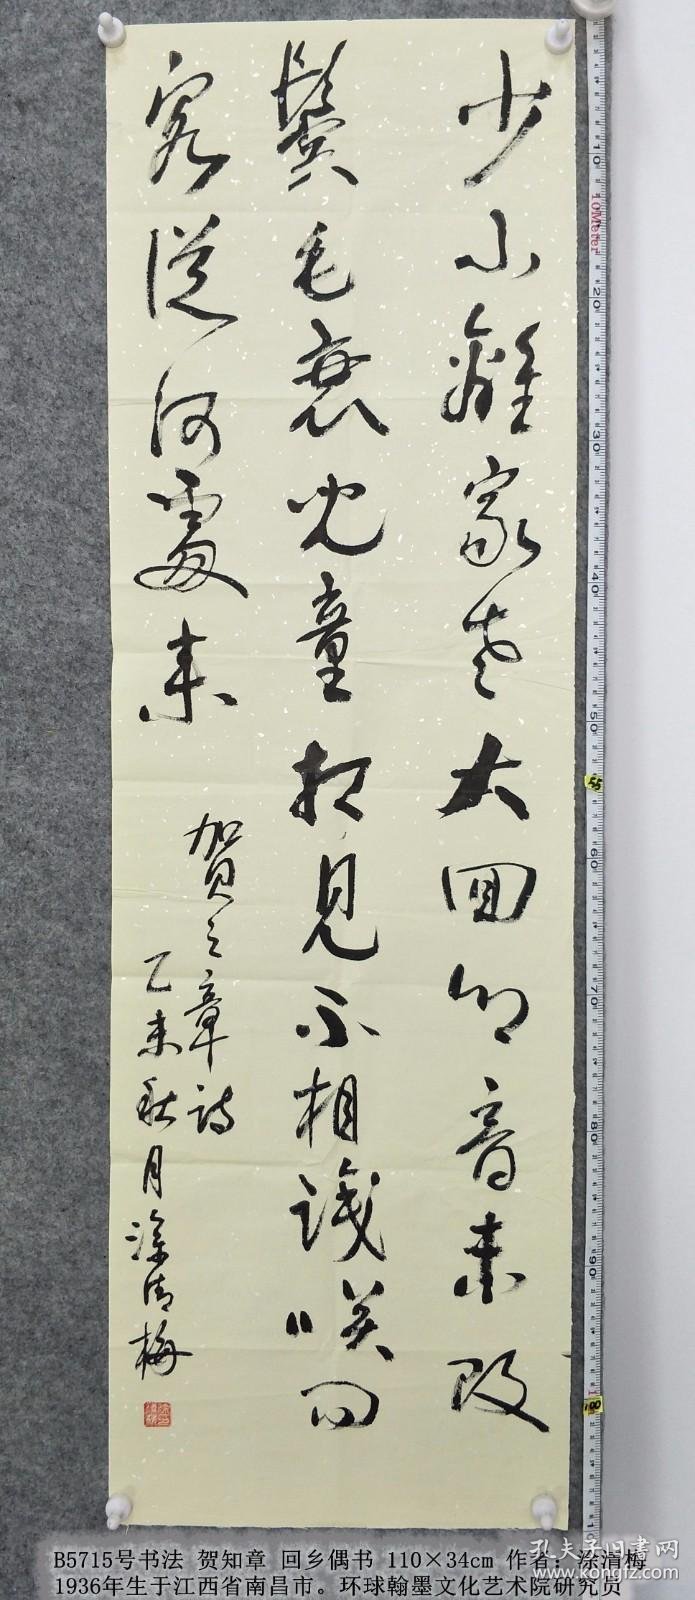 少小離家老大回鄉音未改
鬢毛衰兒童相見不相識咲问
客從何處来
贺之章诗
乙未秋月涂清梅
B5715号书法 贺知章 回乡偶书 110×34cm 作者：涂清梅
1936年生于江西省南昌市。环球翰墨文化艺术院研究员
孔夫子旧书网
www.kongfz.com
10Meter
10
20
30
40
50
55
60
70
80
90
100